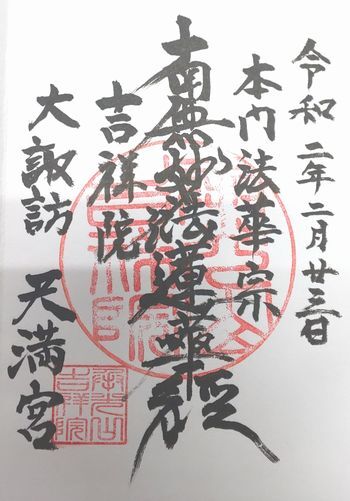 令和二年二月廿三日
本門法華宗
南無妙法蓮華経
吉祥院
大諏訪 天満宮
吉祥院